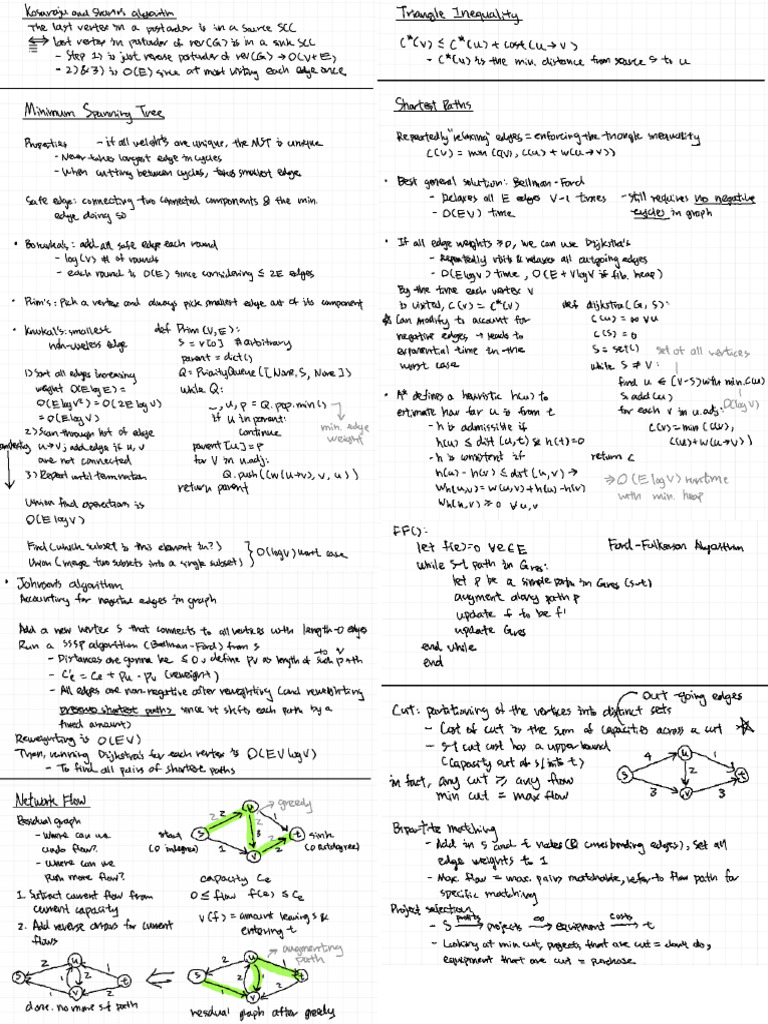 Kosaraju and Sharir's algorithm
The last vertex in a postorder is in a source SCC
⟺ last vertex in postorder of rev(G) is in a sink SCC
- Step 1) is just reverse postorder of rev(G) → O(V+E)
- 2) & 3) is O(E) since at most visiting each edge once
Minimum Spanning Tree
Properties - if all weights are unique, the MST is unique
- Never takes largest edge in cycles
- When cutting between cycles, takes smallest edge
Safe edge: connecting two connected components & the min.
edge doing so
• Boruvka's: add all safe edge each round
- log(V) # of rounds
- each round is O(E) since considering ≤ 2E edges
• Prim's: Pick a vertex and always pick smallest edge out of its component
• Kruskal's: smallest
non-useless edge
1) Sort all edges increasing
weight O(E log E) =
O(E log V²) = O(2E log V)
= O(E log V)
2) Scan through list of edge
u→v; add edge if u, v
are not connected
3) Repeat until termination
Union find operation is
O(E log V)
def Prim(V, E):
S = V[0] # arbitrary
parent = dict()
Q = PriorityQueue([None, S, None])
while Q:
_, u, p = Q.pop.min()
if u in parent:
continue
parent[u] = p
for V in u.adj:
Q.push((w(u→v), v, u))
return parent
min. edge
weight
Find (which subset is this element in?)
Union (merge two subsets into a single subset)
} O(log V) worst case
• Johnson's algorithm
Accounting for negative edges in graph
Add a new vertex S that connects to all vertices with length-0 edges
Run a SSSP algorithm (Bellman-Ford) from s
- Distances are gonna be ≤ 0, define Pv as length of such path
to v
- C'e = Ce + Pu - Pv (reweight)
- All edges are non-negative after reweighting (and reweighting
preserves shortest paths since it shifts each path by a
fixed amount)
Reweighting is O(EV)
Then, running Dijkstra's for each vertex is O(EV log V)
- To find all pairs of shortest paths
Network Flow
Residual graph
- Where can we
undo flow?
- Where can we
push more flow?
1. Subtract current flow from
current capacity
2. Add reverse arrows for current
flows
start
(0 indegree)
greedy
sink
(0 outdegree)
s u v t
2 2 3 1 1 2 2
capacity Ce
0 ≤ flow f(e) ≤ Ce
v(f) = amount leaving s &
entering t
s u v t
2 1 2 1 1 2
done. no more s-t path
augmenting
path
s u v t
2 1 2 1 1 2
residual graph after greedy
Triangle Inequality
C*(v) ≤ C*(u) + cost(u→v)
- C*(u) is the min. distance from source S to u
Shortest Paths
Repeatedly "relaxing" edges = enforcing the triangle inequality
C(v) = min(C(v), C(u) + w(u→v))
• Best general solution: Bellman-Ford
- Relaxes all E edges V-1 times
- O(EV) time
- still requires no negative
cycles in graph
• If all edge weights ≥ 0, we can use Dijkstra's
- Repeatedly visits & relaxes all outgoing edges
- O(E log V) time, O(E + V log V if fib. heap)
By the time each vertex v
is visited, C(v) = C*(v)
Can modify to account for
negative edges → leads to
exponential time in the
worst case
def dijkstra(G, S):
C(u) = ∞ ∀u
C(S) = 0
S = set()
set of all vertices
while S ≠ V:
find u ∈ (V-S) with min. C(u)
S.add(u)
O(log V)
for each v in u.adj:
C(v) = min(C(v),
C(u) + w(u→v))
return C
⇒ O(E log V) runtime
with min. heap
• A* defines a heuristic h(u) to
estimate how far u is from t
- h is admissible if
h(u) ≤ dist(u, t) & h(t) = 0
- h is consistent if
h(u) - h(v) ≤ dist(u, v) →
Wh(u,v) = w(u,v) + h(v) - h(u)
Wh(u,v) ≥ 0 ∀ u,v
FF():
Ford-Fulkerson Algorithm
let f(e)=0 ∀e∈E
while s-t path in Gres:
let p be a simple path in Gres (s-t)
augment along path p
update f to be f'
update Gres
end while
end
out going edges
Cut: partitioning of the vertices into distinct sets
- Cost of cut is the sum of capacities across a cut
- s-t cut cost has a upper bound
(capacity out of s / into t)
in fact, any cut ≥ any flow
min cut = max flow
s u v t
4 1 2 3 3
Bipartite matching
- Add in s and t nodes (& corresponding edges), set all
edge weights to 1
- Max flow = max. pairs matchable, refer to flow path for
specific matching
Project selection
- S → projects → equipment → t
profits ∞ costs
- Looking at min cut, projects that are cut = don't do,
equipment that are cut = purchase